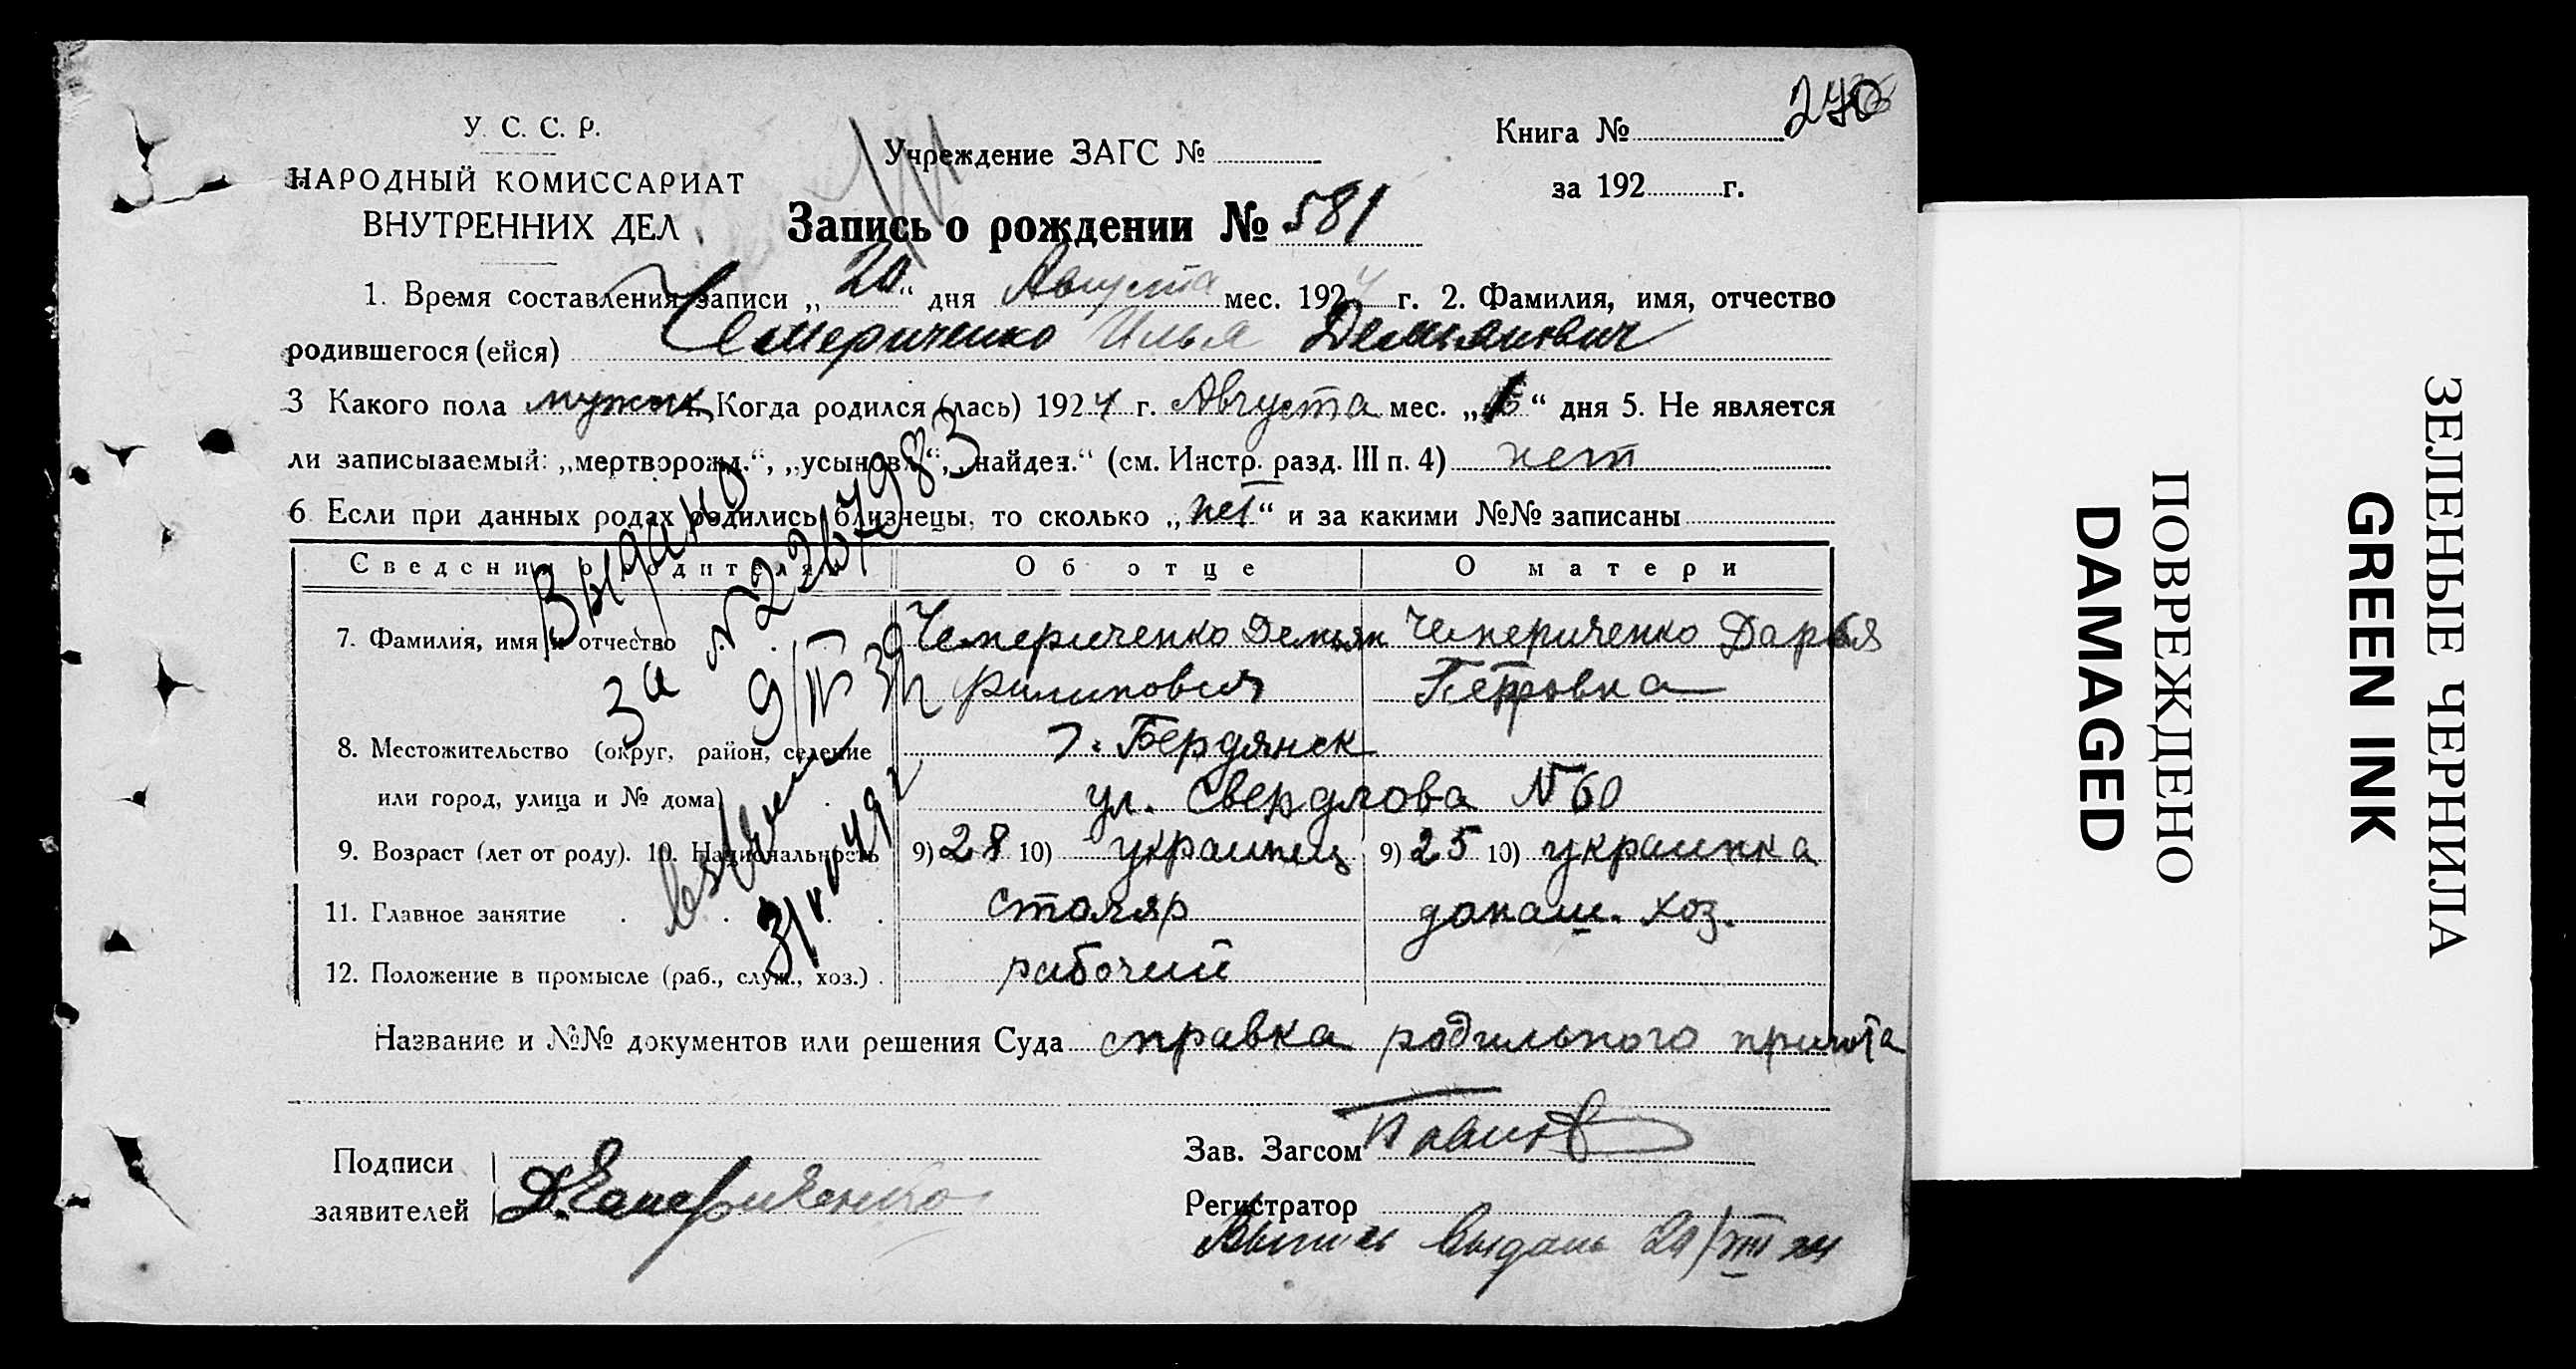 270
У. С. С. Р.
НАРОДНЫЙ КОМИССАРИАТ
ВНУТРЕННИХ ДЕЛ
Учреждение ЗАГС №
Книга №
за 192 г.
Запись о рождении № 581
1. Время составления записи „20“ дня Августа мес. 1924 г. 2. Фамилия, имя, отчество
родившегося (ейся) Чемериченко Илья Демьянович
3 Какого пола мужск. Когда родился (лась) 1924 г. Августа мес. „ “ дня 5. Не является
ли записываемый: „мертворожд.“, „усыновл.“, „найден.“ (см. Инстр. разд. III п. 4) нет
6 Если при данных родах родились близнецы, то сколько „нет“ и за какими №№ записаны
Сведения о родителях Об отце О матери
7. Фамилия, имя и отчество Чемериченко Демьян Чемериченко Дарья
Филиппович Петровна
8. Местожительство (округ, район, селение г. Бердянск
или город, улица и № дома) ул. Свердлова № 60
9. Возраст (лет от роду). 10. Национальность 9) 28 10) украинец 9) 25 10) украинка
11. Главное занятие столяр домаш. хоз.
12. Положение в промысле (раб., служ., хоз.) рабочий
Название и №№ документов или решения Суда справка родильного приюта
Подписи
заявителей Д. Чемериченко
Зав. Загсом
Регистратор
Выпись выдана 20/VIII 24
Выдано
за № 2267983
9/IV 39
31/V 49 г
ПОВРЕЖДЕНО
DAMAGED
ЗЕЛЕНЫЕ ЧЕРНИЛА
GREEN INK